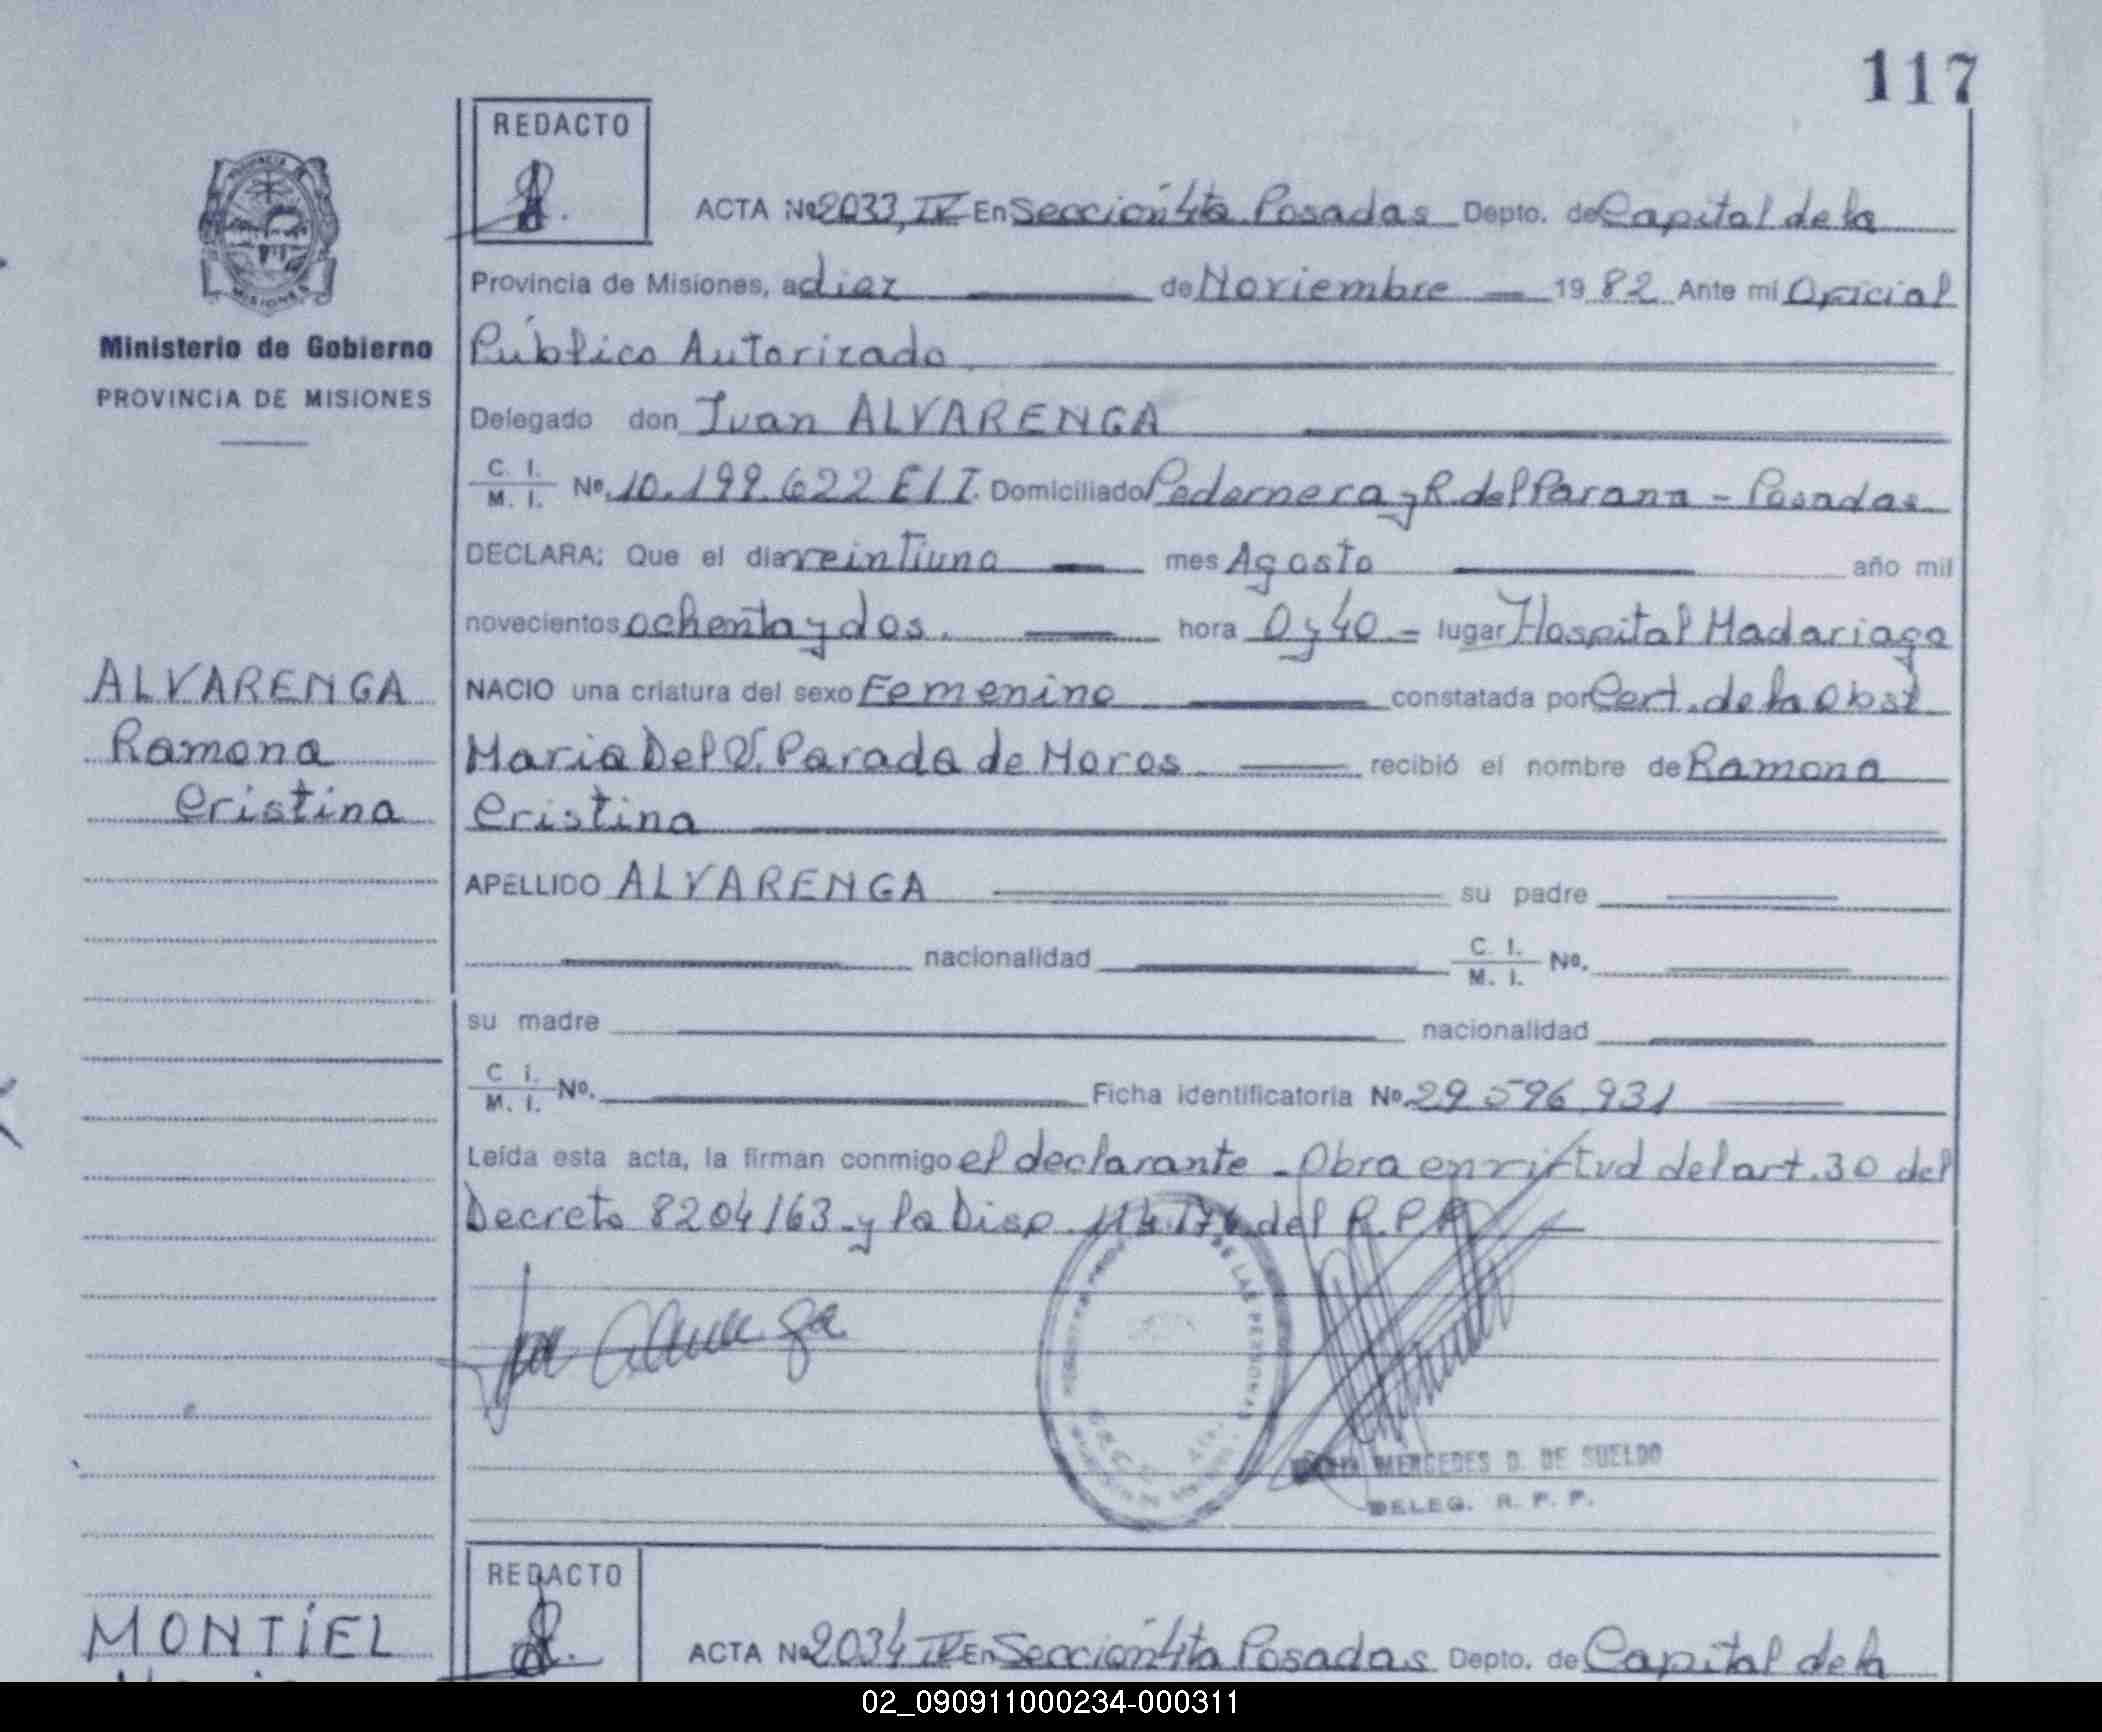 117
REDACTO
ACTA Nº 2033, IV En Sección 4ta Posadas Depto. de Capital de la
Provincia de Misiones, a diez de Noviembre 19 82 Ante mi Oficial
Ministerio de Gobierno
PROVINCIA DE MISIONES
Público Autorizado
Delegado don Juan ALVARENGA
C. I. / M. I. Nº. 10.199.622 E/I. Domiciliado Pedernera y R. del Parana - Posadas
DECLARA: Que el dia veintiuno mes Agosto año mil
novecientos ochenta y dos. hora 0 y 40 = lugar Hospital Madariaga
ALVARENGA
Ramona
Cristina
NACIO una criatura del sexo Femenino constatada por Cert. de la Obst
Maria Del V. Parada de Moros recibió el nombre de Ramona
Cristina
APELLIDO ALVARENGA su padre
nacionalidad C. I. / M. I. Nº.
su madre nacionalidad
C I. / M. I. Nº. Ficha identificatoria Nº. 29 596 931
Leída esta acta, la firman conmigo el declarante - Obra en virtud del art. 30 del
Decreto 8204/63 - y la Disp. del R.P.P
DE LAS PERSONAS
MERCEDES D. DE SUELDO
DELEG. R. P. P.
REDACTO
MONTIEL
ACTA Nº 2034 IV En Sección 4ta Posadas Depto. de Capital de la
02_090911000234-000311